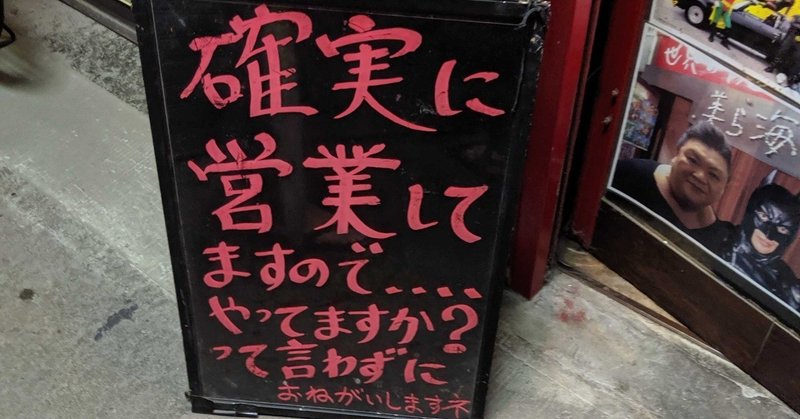 確実に
営業して
ますので....
やってますか?
って言わずに
おねがいしますネ